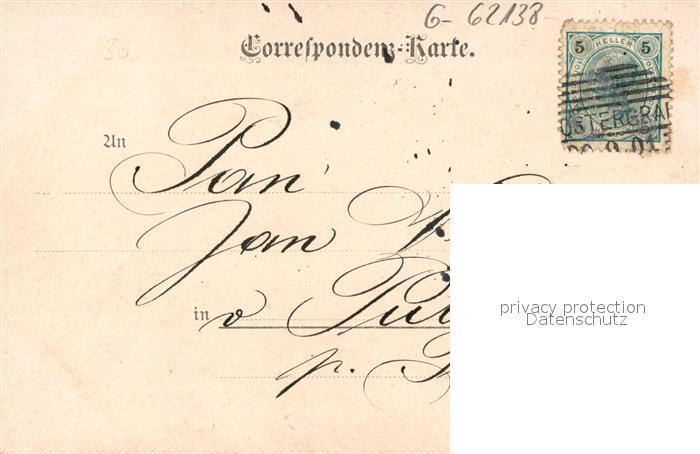 G- 62138
36
Correspondenz-Karte.
5 HELLER 5
OSTERGRA
9 01
An
Pan
Jan
in v
p.
privacy protection
Datenschutz